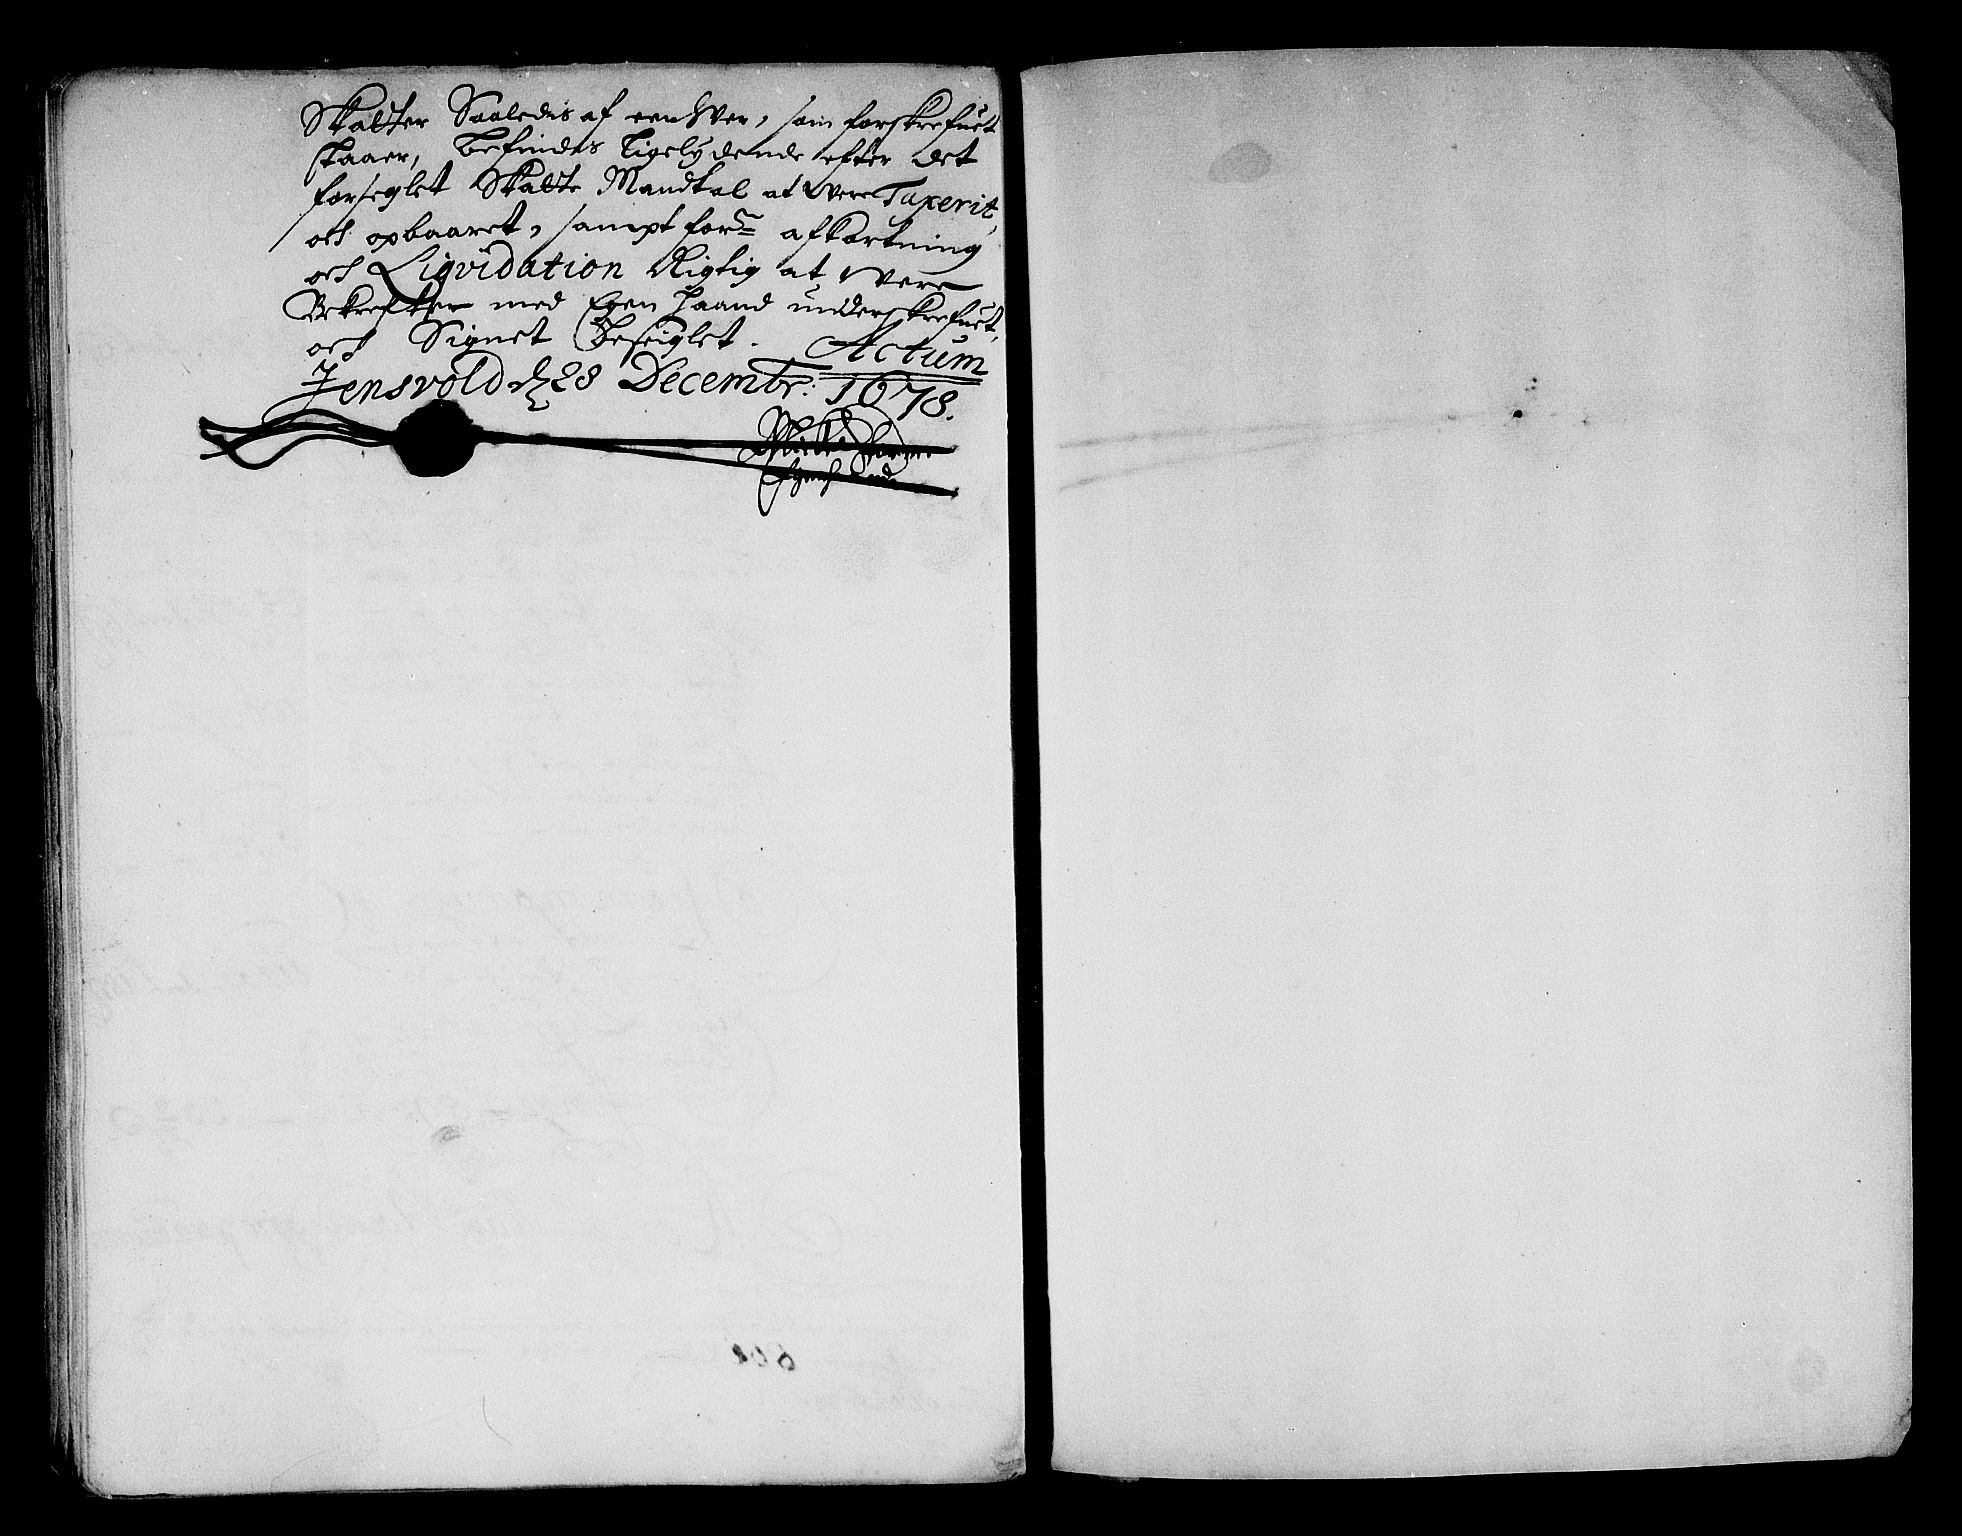 Skatter Saaledis af een Hver, som forskrefuet
staaer, befindes ligelydende efter det
forseglet Skatte Mandtal at were Taxerit,
och opbaaret, sampt for:ne afkortning
och Liqvidation Rigtig at were
Bekrefter med Egen haand underskrefuet,
och Signet Beseiglet. Actum
Jensvold d 28 Decembr: 1678.
Egenhend